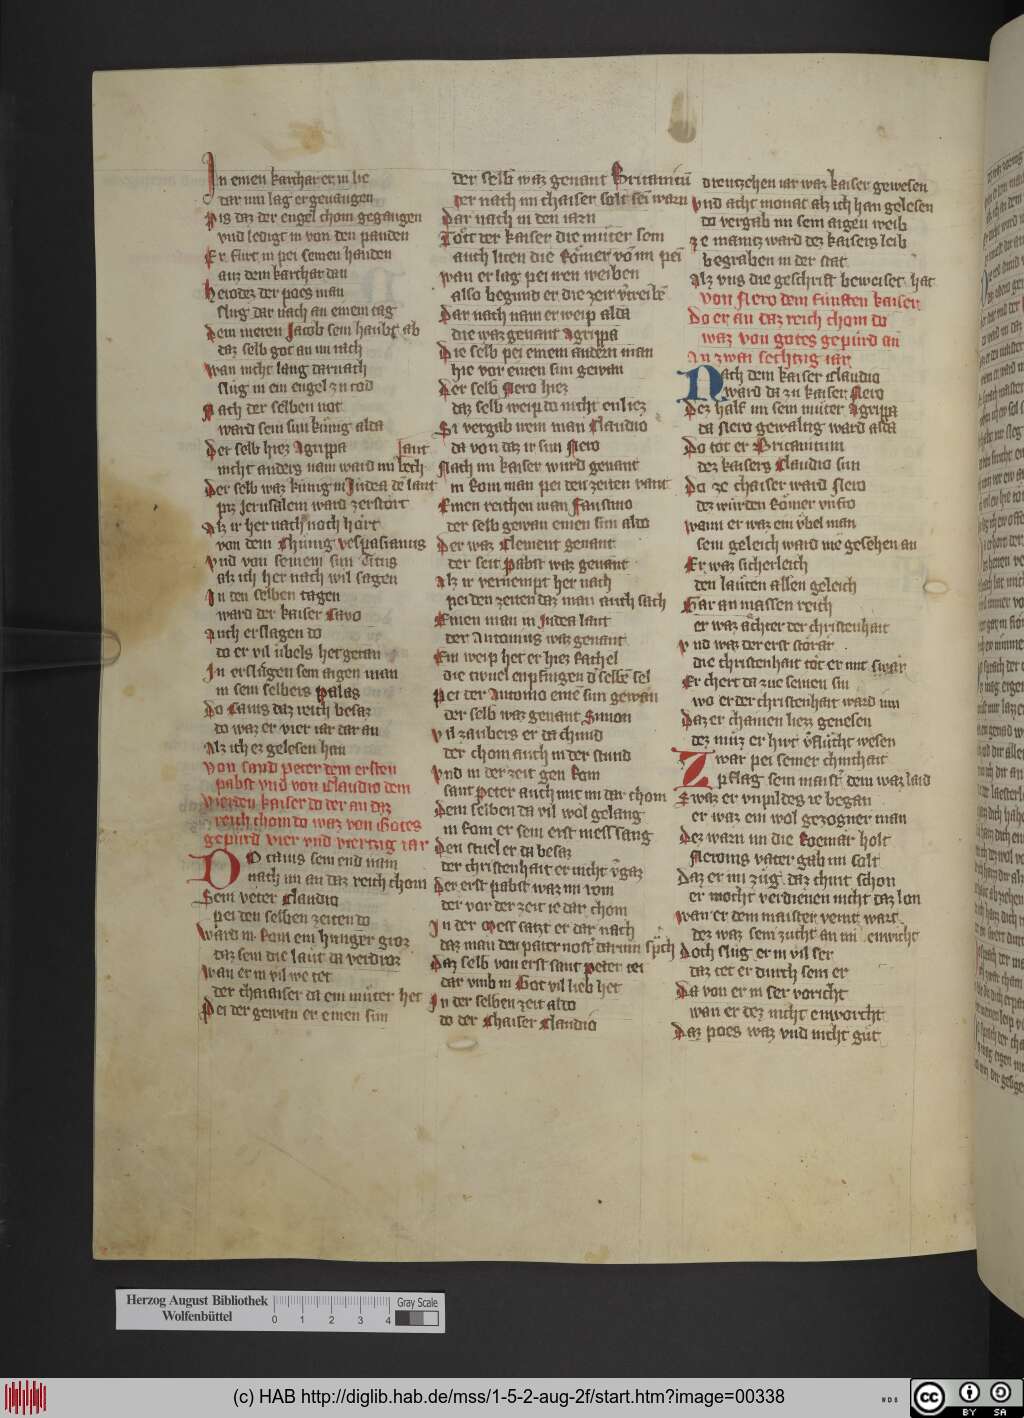 In einen karchar er in lie
dar inn lag er geuangen
Piz daz der engel chom gegangen
vnd ledigt in von den panden
Er fürt in pei seinen handen
auz dem karchar dan
herodez der poes man
slug dar nach an einem tag
Dem meren Jacob sein haubt ab
daz selb got an im rach
wan nicht lang darnach
slůg in ein engel zu tod
Nach der selben not
ward sein sun künig alda
Der selb hiez Agrippa
nicht anders nam ward im bech
lant
Der selb waz künig in Judea dē lant
piz Jerusalem ward zerstört
Alz ir her nach noch hört
von dem Chünig vespasianus
vnd von seinem sun Titus
alz ich her nach wil sagen
In den selben tagen
ward der kaiser Cayo
Auch erslagen do
do er vil übels het getan
In erslůgen sein aigen man
in sein selbers palas
Do Cayus daz reich besaz
do waz er vier iar dar an
Alz ich ez gelesen han
von sand peter dem ersten
pabst vnd von Claudio dem
vierden kaiser do der an daz
reich chom do waz von Gotes
gepurd vier vnd viertzig iar
DO Caius sein end nam
nach im an daz reich chom
Sein veter Claudio
pei den selben zeiten do
ward in Rom ein hunger groz
daz sein die laüt da verdroz
wan er in vil we tet
der chaiaiser da ein můter het
Pei der gewan er einen sun
der selb waz genant Britanicū
der nach im chaiser solt sein warn
Dar nach in den iarn
Tött der kaiser die můter sein
auch liten die Römer vō im pei
wan er lag pei iren weiben
also begund er die zeit v̄treibē
Dar nach nam er weip alda
die waz genant Agrippa
Die selb pei einem andern man
hie vor einen sun gewan
Der selb Nero hiez
daz selb weip do nicht enliez
Si vergab irem man Claudio
da von daz ir sun Nero
Nach im kaiser wurd genant
in Rom man pei den zeiten vant
Einen reichen man Faustino
der selb gewan einen sun aldo
Der waz Clement genant
der seit pabst waz genant
Alz ir vernempt her nach
pei den zeiten daz man auch sach
Einen man in Judea lant
der Antonius waz genant
Ein weip het er hiez Rachel
die tivuel enpfingen d' selbē sel
Pei der Antonio einē sun gewan
der selb waz genant Simon
vil zaubers er da chund
der chom auch in der stund
vnd in der zeit gen Rom
sant peter auch mit im dar chom
Dem selben da vil wol gelang
in Rom er sein erst mess sang
Den stuel er da besaz
der christenhait er nicht v̄gaz
Der erst pabst waz im rom
der vor der zeit ie dar chom
In der Mess satzt er dar nach
daz man den pater nost' darinn sp̄ch
Daz selb von erst sant peter tet
dar vmb in Got vil lieb het
In der selben zeit aldo
do der Chaiser Claudio
dreutzehen iar waz kaiser gewesen
vnd acht monat alz ich han gelesen
do vergab im sein aigen weib
ze maintz ward dez kaisers leib
begraben in der stat
Alz vns die geschrift beweiset hat
von Nero dem fünften kaiser
Do er an daz reich chom do
waz von gotes gepurd an
An zwai sechtzig iar
Nach dem kaiser Claudio
ward da zu kaiser Nero
Dez half im sein můter Agrippa
da Nero gewaltig ward alda
Do tot er Britanicum
dez kaisers Claudio sun
Do ze chaiser ward Nero
dez würden Römer vnfro
wann er waz ein übel man
sein geleich ward nie gesehen an
Er waz sicherleich
den laüten allen geleich
Gar an massen reich
er waz ächter der christenhait
vnd waz der erst störar
die christenhait töt er mit swār
Er chert da zue seinen sin
wo er der christenhait ward inn
Daz er chainen liezz genesen
dez můz er hiut v̄flücht wesen
Zwar pei seiner chinthait
pflag sein maist' dem waz laid
Swaz er vnpildes ie began
er waz ein wol gezogner man
Dez warn im die Roemar holt
Neronis vater gab im solt
Daz er im züg daz chint schon
er mocht verdienen nicht daz lon
wan er dem maister vernt wart
dez waz sein zucht an im enwicht
Doch slug er in vil ser
daz tet er durch sein er
Da von er in ser voricht
wan er dez nicht enworcht
Daz poes waz vnd nicht gůt
Herzog August Bibliothek
Wolfenbüttel
0 1 2 3 4
Gray Scale
(c) HAB http://diglib.hab.de/mss/1-5-2-aug-2f/start.htm?image=00338
WDB
cc BY SA